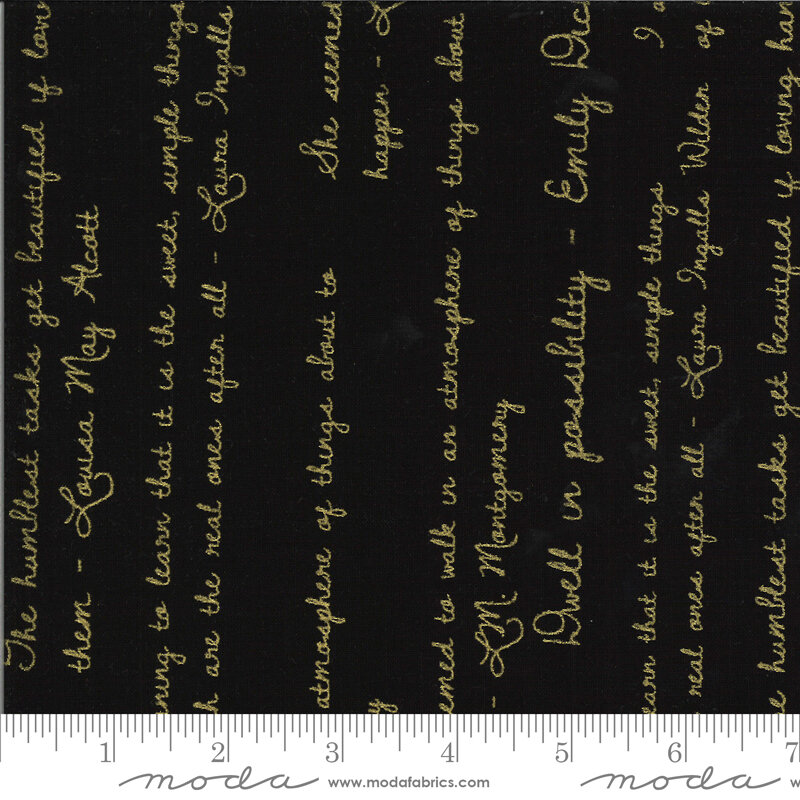 The humblest tasks get beautified if lov
them - Louisa May Alcott
ning to learn that it is the sweet, simple things
h are the real ones after all - Laura Ingalls
atmosphere of things about to
She seemed
happen - L
y
emed to walk in an atmosphere of things about
- L.M. Montgomery
Dwell in possibility - Emily Dic
earn that it is the sweet, simple things
I a
real ones after all - Laura Ingalls Wilder
of
e humblest tasks get beautified if loving han
1 2 3 4 5 6 7
moda www.modafabrics.com moda w